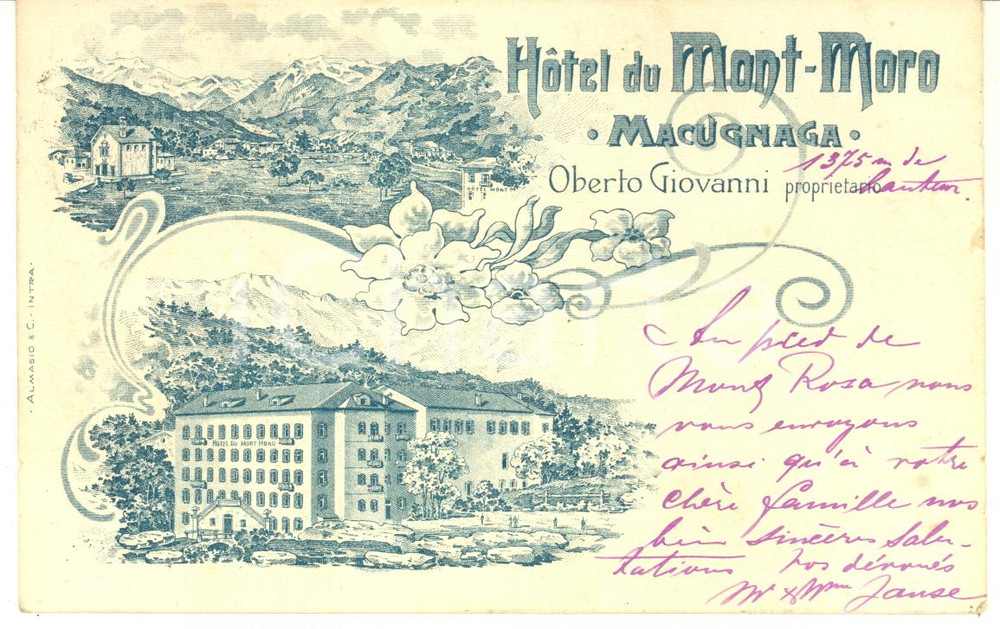 Hôtel du Mont-Moro
• MACUGNAGA •
Oberto Giovanni proprietario
1375 m de
hauteur.
HÔTEL MONT M
HÔTEL DU MONT MORO
• ALMASIO & C. - INTRA •
Au pied de
Mont Rosa nous
vous envoyons
ainsi qu'à votre
chère famille nos
bien sincères salu-
tations Vos dévoués
Mr & Mme Janse